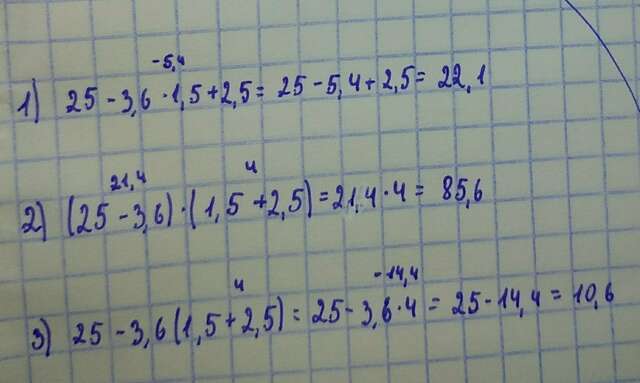 -5,4
1) 25 - 3,6 · 1,5 + 2,5 = 25 - 5,4 + 2,5 = 22,1
21,4 4
2) (25 - 3,6) · (1,5 + 2,5) = 21,4 · 4 = 85,6
4 -14,4
3) 25 - 3,6 (1,5 + 2,5) = 25 - 3,6 · 4 = 25 - 14,4 = 10,6